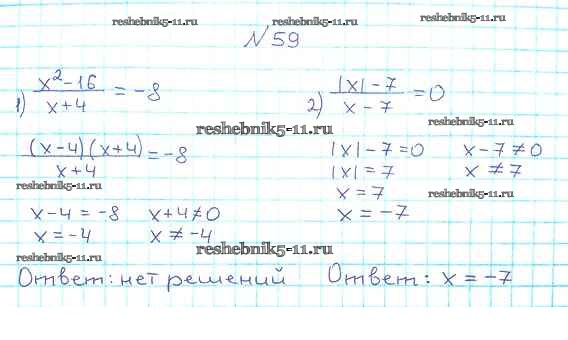 reshebnik5-11.ru reshebnik5-11.ru reshebnik5-11.ru
№ 59
1) (x² - 16)/(x + 4) = -8
2) (|x| - 7)/(x - 7) = 0
reshebnik5-11.ru reshebnik5-11.ru
((x - 4)(x + 4))/(x + 4) = -8
|x| - 7 = 0 x - 7 ≠ 0
|x| = 7 x ≠ 7
reshebnik5-11.ru reshebnik5-11.ru
x = 7
x - 4 = -8 x + 4 ≠ 0
x = -7
x = -4 x ≠ -4
reshebnik5-11.ru reshebnik5-11.ru
Ответ: нет решений
Ответ: x = -7